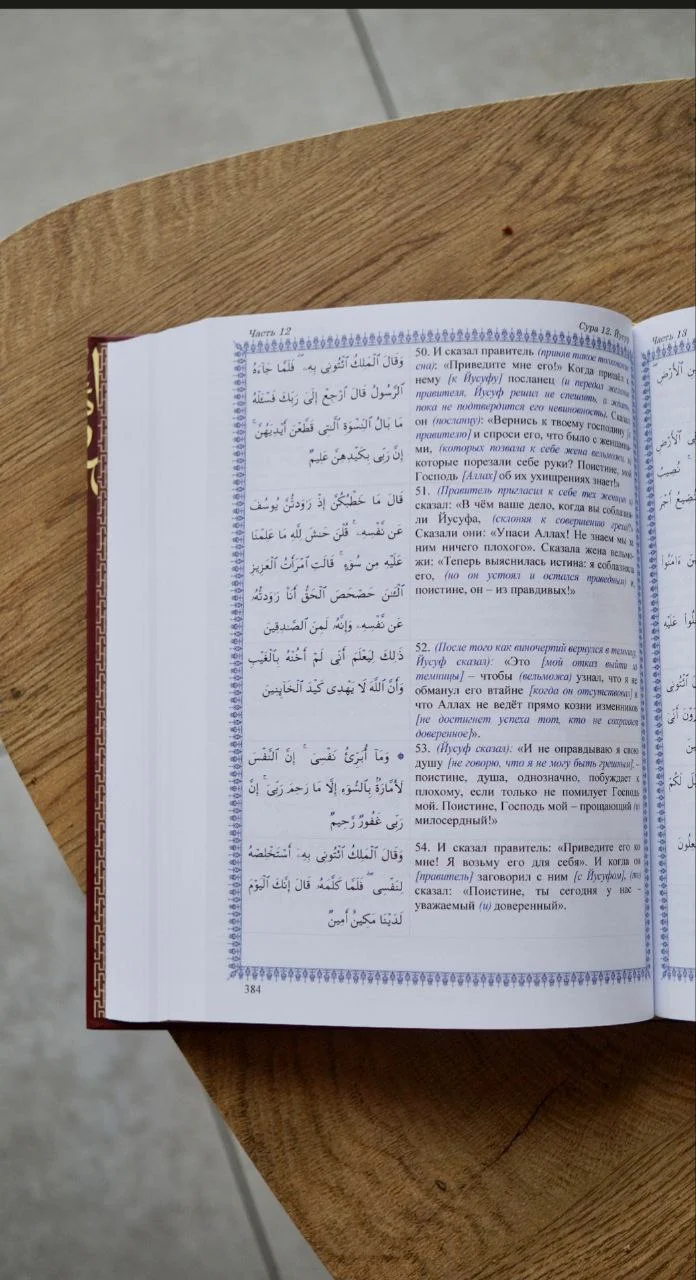 Часть 12
Сура 12. Йусуф
وَقَالَ ٱلْمَلِكُ ٱئْتُونِى بِهِۦ ۖ فَلَمَّا جَآءَهُ
ٱلرَّسُولُ قَالَ ٱرْجِعْ إِلَىٰ رَبِّكَ فَسْـَٔلْهُ
مَا بَالُ ٱلنِّسْوَةِ ٱلَّـٰتِى قَطَّعْنَ أَيْدِيَهُنَّ ۚ
إِنَّ رَبِّى بِكَيْدِهِنَّ عَلِيمٌ
قَالَ مَا خَطْبُكُنَّ إِذْ رَٰوَدتُّنَّ يُوسُفَ
عَن نَّفْسِهِۦ ۚ قُلْنَ حَـٰشَ لِلَّهِ مَا عَلِمْنَا
عَلَيْهِ مِن سُوٓءٍ ۚ قَالَتِ ٱمْرَأَتُ ٱلْعَزِيزِ
ٱلْـَٔـٰنَ حَصْحَصَ ٱلْحَقُّ أَنَا۠ رَٰوَدتُّهُۥ
عَن نَّفْسِهِۦ وَإِنَّهُۥ لَمِنَ ٱلصَّـٰدِقِينَ
ذَٰلِكَ لِيَعْلَمَ أَنِّى لَمْ أَخُنْهُ بِٱلْغَيْبِ
وَأَنَّ ٱللَّهَ لَا يَهْدِى كَيْدَ ٱلْخَآئِنِينَ
۞ وَمَآ أُبَرِّئُ نَفْسِىٓ ۚ إِنَّ ٱلنَّفْسَ
لَأَمَّارَةٌۢ بِٱلسُّوٓءِ إِلَّا مَا رَحِمَ رَبِّىٓ ۚ إِنَّ
رَبِّى غَفُورٌ رَّحِيمٌ
وَقَالَ ٱلْمَلِكُ ٱئْتُونِى بِهِۦٓ أَسْتَخْلِصْهُ
لِنَفْسِى ۖ فَلَمَّا كَلَّمَهُۥ قَالَ إِنَّكَ ٱلْيَوْمَ
لَدَيْنَا مَكِينٌ أَمِينٌ
50. И сказал правитель (приняв такое толкование
сна): «Приведите мне его!» Когда пришёл к
нему [к Йусуфу] посланец (и передал желание
правителя, Йусуф решил не спешить, а ждать,
пока не подтвердится его невиновность). Сказал
он (посланцу): «Вернись к твоему господину [к
правителю] и спроси его, что было с женщина-
ми, (которых позвала к себе жена вельможи, и)
которые порезали себе руки? Поистине, мой
Господь [Аллах] об их ухищрениях знает!»
51. (Правитель пригласил к себе тех женщин и)
сказал: «В чём ваше дело, когда вы соблазня-
ли Йусуфа, (склоняя к совершению греха)?»
Сказали они: «Упаси Аллах! Не знаем мы за
ним ничего плохого». Сказала жена вельмо-
жи: «Теперь выяснилась истина: я соблазняла
его, (но он устоял и остался праведным) и,
поистине, он – из правдивых!»
52. (После того как виночерпий вернулся в темницу,
Йусуф сказал): «Это [мой отказ выйти из
темницы] – чтобы (вельможа) узнал, что я не
обманул его втайне [когда он отсутствовал] и
что Аллах не ведёт прямо козни изменников
[не достигнет успеха тот, кто не сохраняет
доверенное]».
53. (Йусуф сказал): «И не оправдываю я свою
душу [не говорю, что я не могу быть грешным], –
поистине, душа, однозначно, побуждает к
плохому, если только не помилует Господь
мой. Поистине, Господь мой – прощающий (и)
милосердный!»
54. И сказал правитель: «Приведите его ко
мне! Я возьму его для себя». И когда он
[правитель] заговорил с ним [с Йусуфом], (то)
сказал: «Поистине, ты сегодня у нас –
уважаемый (и) доверенный».
384
Часть 13
ٱلْأَرْضِ
ٱلْأَرْضِ
نُصِيبُ
نُضِيعُ أَجْرَ
ءَامَنُوا۟
عَلَيْهِ
ٱئْتُونِى
أَنِّى
لَكُمْ